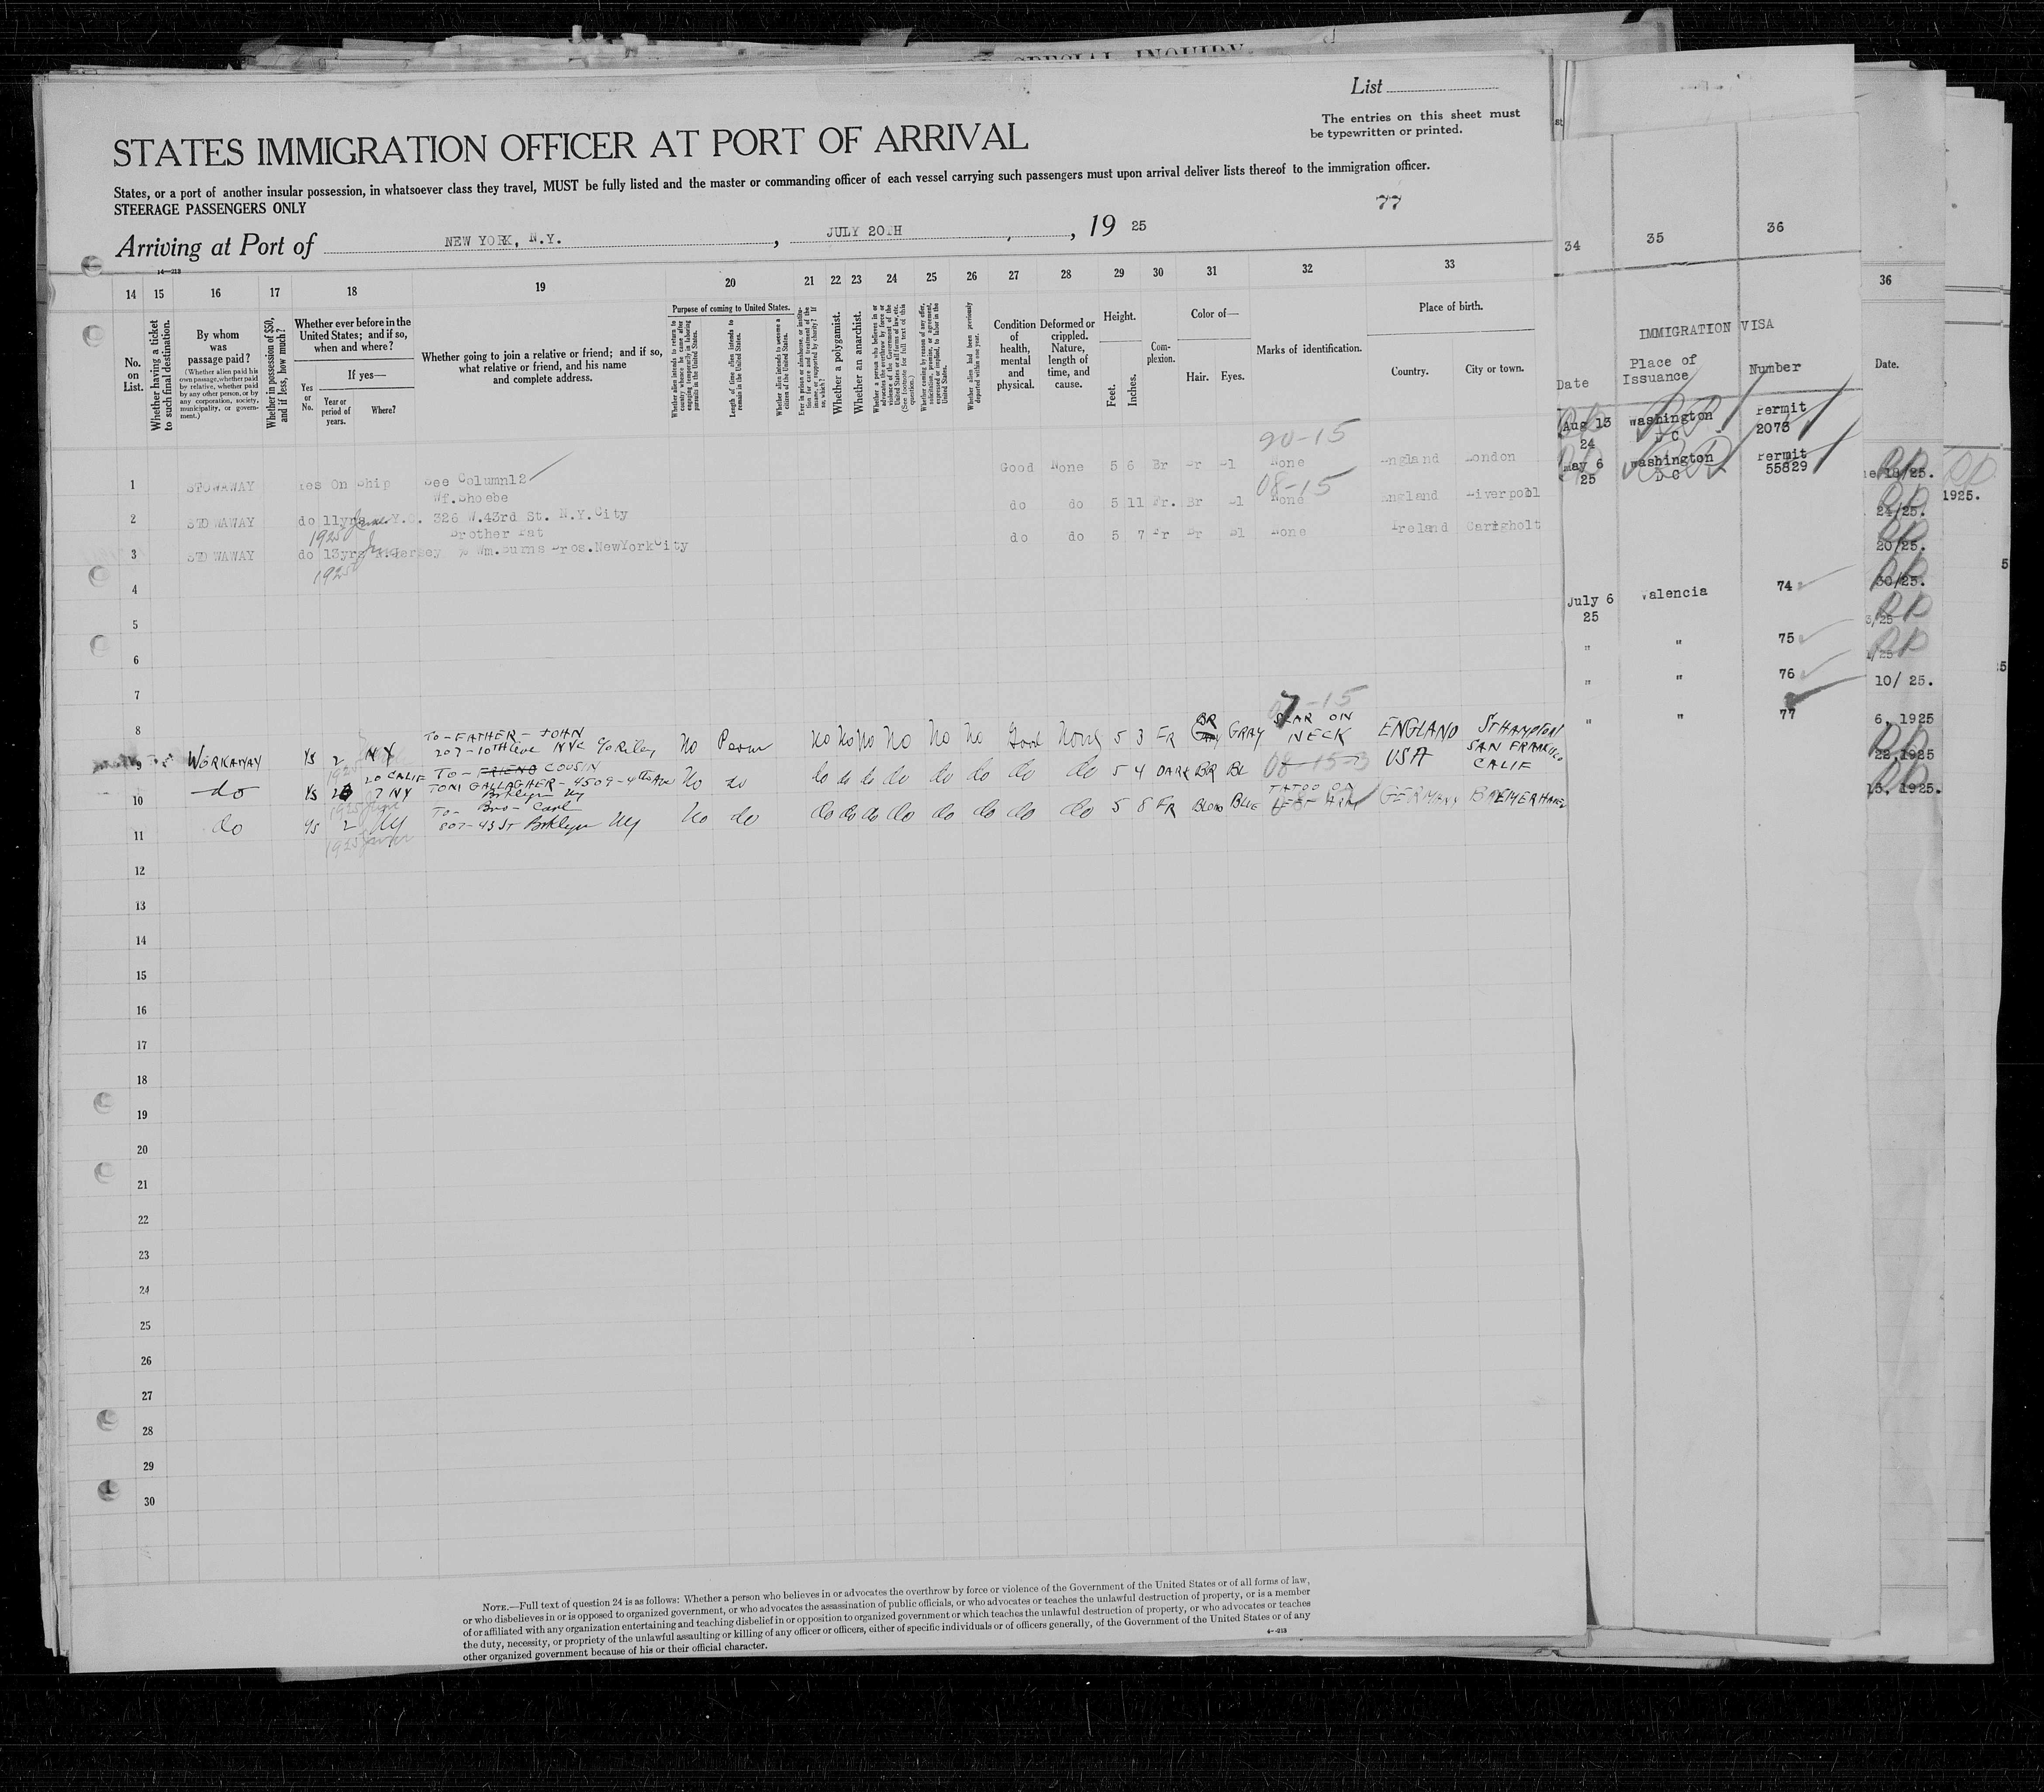 SPECIAL INQUIRY
List
The entries on this sheet must
be typewritten or printed.
STATES IMMIGRATION OFFICER AT PORT OF ARRIVAL
States, or a port of another insular possession, in whatsoever class they travel, MUST be fully listed and the master or commanding officer of each vessel carrying such passengers must upon arrival deliver lists thereof to the immigration officer.
STEERAGE PASSENGERS ONLY
77
Arriving at Port of NEW YORK, N.Y. , JULY 20TH , 19 25
14—213
14 15 16 17 18 19 20 21 22 23 24 25 26 27 28 29 30 31 32 33
34 35 36
36
No. on List.
Whether having a ticket to such final destination.
By whom was passage paid?
(Whether alien paid his own passage, whether paid by relative, whether paid by any other person, or by any corporation, society, municipality, or government.)
Whether in possession of $50, and if less, how much?
Whether ever before in the United States; and if so, when and where?
If yes—
Yes or No.
Year or period of years.
Where?
Whether going to join a relative or friend; and if so, what relative or friend, and his name and complete address.
Purpose of coming to United States.
Whether alien intends to return to country whence he came after engaging temporarily in laboring pursuits in the United States.
Length of time alien intends to remain in the United States.
Whether alien intends to become a citizen of the United States.
Ever in prison or almshouse, or institution for care and treatment of the insane, or supported by charity? If so, which?
Whether a polygamist.
Whether an anarchist.
Whether a person who believes in or advocates the overthrow by force or violence of the Government of the United States or all forms of law, etc. (See footnote for full text of this question.)
Whether coming by reason of any offer, solicitation, promise, or agreement, expressed or implied, to labor in the United States.
Whether alien had been previously deported within one year.
Condition of health, mental and physical.
Deformed or crippled. Nature, length of time, and cause.
Height.
Feet.
Inches.
Complexion.
Color of—
Hair.
Eyes.
Marks of identification.
Place of birth.
Country.
City or town.
IMMIGRATION VISA
Date
Place of Issuance
Number
Date.
90-15
1 STOWAWAY Yes On Ship See Column12 Good None 5 6 Br Br Bl None England London
08-15
Wf. Shoebe
2 STOWAWAY do 11yrs N.Y.C. 326 W.43rd St. N.Y.City do do 5 11 Fr. Br Bl None England Liverpool
1925 June
Brother Pat
3 STOWAWAY do 13yrs N.Jersey % Wm.Burns Bros.NewYorkCity do do 5 7 Fr Br Bl None Ireland Carigholt
1925
4
5
6
7
8
07-15
To-FATHER-JOHN
9 WORKAWAY YS 2 NY 207-10TH Ave NYC % Riley No Perm No No No No No No Good None 5 3 FR BR GRAY SCAR ON NECK ENGLAND STHAMPTON
20 CALIF TO-FRIEND COUSIN
10 do YS 7 NY TONI GALLAGHER-4509-4th Ave Brklyn Ny No do do do do do do do do do 5 4 DARK BR BL 08-15-3 USA SAN FRANCISCO CALIF
To- Bro- Carl
11 do YS 2 NY 807-43 St Brklyn NY No do do do do do do do do do 5 8 FR BLOND BLUE TATOO ON LEFT ARM GERMANY BREMERHAVEN
12
13
14
15
16
17
18
19
20
21
22
23
24
25
26
27
28
29
30
Aug 13 24 Washington D C Permit 2073
May 6 25 Washington D C Permit 55829
July 6 25 Valencia 74
" " 75
" " 76
" " 77
18/25.
1925.
24/25.
20/25.
30/25.
3/25
1/25
10/ 25.
6, 1925
22,1925
15, 1925.
NOTE.—Full text of question 24 is as follows: Whether a person who believes in or advocates the overthrow by force or violence of the Government of the United States or of all forms of law,
or who disbelieves in or is opposed to organized government, or who advocates the assassination of public officials, or who advocates or teaches the unlawful destruction of property, or is a member
of or affiliated with any organization entertaining and teaching disbelief in or opposition to organized government or which teaches the unlawful destruction of property, or who advocates or teaches
the duty, necessity, or propriety of the unlawful assaulting or killing of any officer or officers, either of specific individuals or of officers generally, of the Government of the United States or of any
other organized government because of his or their official character.
4—213